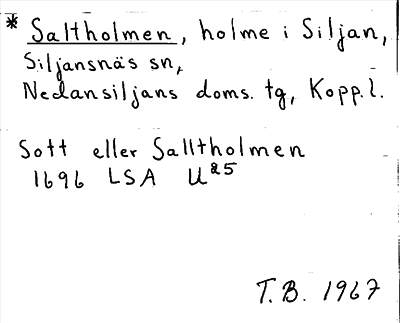 * Saltholmen, holme i Siljan,
Siljansnäs sn,
Nedansiljans doms. tg, Kopp. l.
Sott eller Salltholmen
1696 LSA U25
T.B. 1967